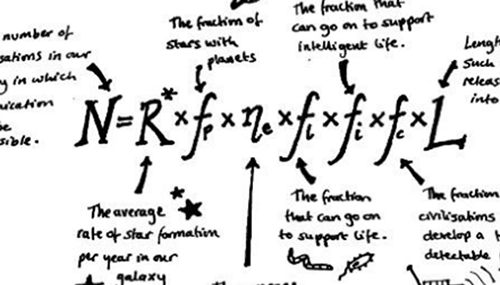 number of
sations in our
y in which
ication
be
sible.
The fraction of
stars with
planets
The fraction that
can go on to support
intelligent life.
Such
releas
into
N = R* × fp × ηe × fl × fi × fc × L
The average
rate of star formation
per year in our
galaxy
The fraction
that can go on
to support life.
The fraction
civilisations
develop a t
detectable